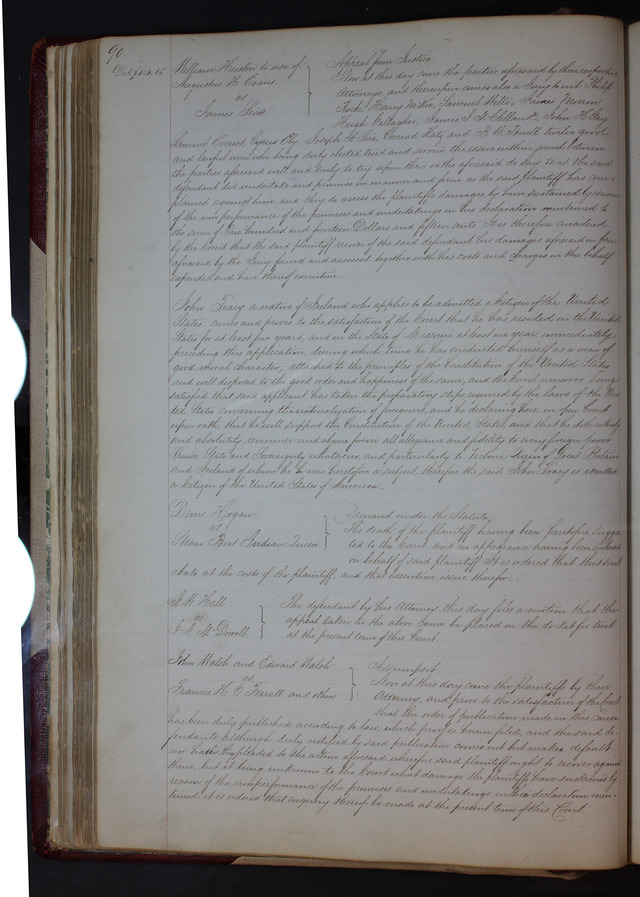 90
William Huston to use of
Augustus H. Evans
vs
James Suss
Appeal from Justice
Now at this day come the parties aforesaid by their respective
Attorneys, and thereupon comes also a Jury to wit Philip
Rocks Henry Samuel Wills, James Morrow
Hugh Gallagher, James S McClelland, John H Gay
Samuel Conrad Katz and F. W. Powell twelve good
and lawful men who being duly elected tried and sworn the issue within joined between
the parties aforesaid well and truly to try upon their oaths aforesaid do say that the said
defendant did undertake and promise in manner and form as the said plaintiff has com-
plained against him, and they do assess the plaintiffs damages by him sustained by reason
of the nonperformance of the promises and undertakings in the declaration mentioned to
the sum of One hundred and fourteen Dollars and fifteen cents It is therefore considered
by the Court that the said plaintiff recover of the said defendant his damages aforesaid in form
aforesaid by the Jury found and assessed together with his costs and charges in this behalf
expended and have thereof execution.
John Tracy a native of Ireland who applies to be admitted a Citizen of the United
States, comes and proves to the satisfaction of the Court that he has resided in the United
States for at least five years, and in the State of Missouri at least one year, immediately
preceding this application, during which time he has conducted himself as a man of
good moral character, attached to the principles of the Constitution of the United States
and well disposed to the good order and happiness of the same, and the Court moreover being
satisfied that said applicant has taken the preparatory steps required by the laws of the Uni-
ted States concerning the naturalization of foreigners, and he declaring here in Open Court
upon oath that he will support the Constitution of the United States, and that he doth entirely
and absolutely renounce and abjure forever all allegiance and fidelity to every foreign power
Prince State and Sovereignty whatsoever, and particularly to Victoria Queen of Great Britain
and Ireland of whom he was heretofore a subject, therefore the said John Tracy is admitted
a Citizen of the United States of America.
Denis Hogan
vs
Steam Boat Indian Queen
Demand under the Statute,
The death of the plaintiff having been heretofore sugges
ted to the Court and no appearance having been entered
on behalf of said plaintiff It is ordered that this suit
abate at the costs of the plaintiff, and that execution issue therefor.
J. W. Hall
vs
McDowell
The defendant by his Attorney this day files a motion that the
appeal taken in the above cause be placed on the docket for trial
at the present term of this Court
John Walsh and Edward Walsh
vs
Frances H. O'Ferrall and others
Assumpsit.
Now at this day come the plaintiffs by their
Attorney, and prove to the satisfaction of the Court
that the order of publication made in this cause
has been duly published according to law, which proof is herein filed, and the said de-
fendants although duly notified by said publication comes not but makes default
nor hath pleaded to the action aforesaid wherefore said plaintiff ought to recover against
them, but it being unknown to the Court what damage the plaintiffs have sustained by
reason of the nonperformance of the promises and undertakings in the declaration men-
tioned it is ordered that enquiry thereof be made at the present term of this Court.